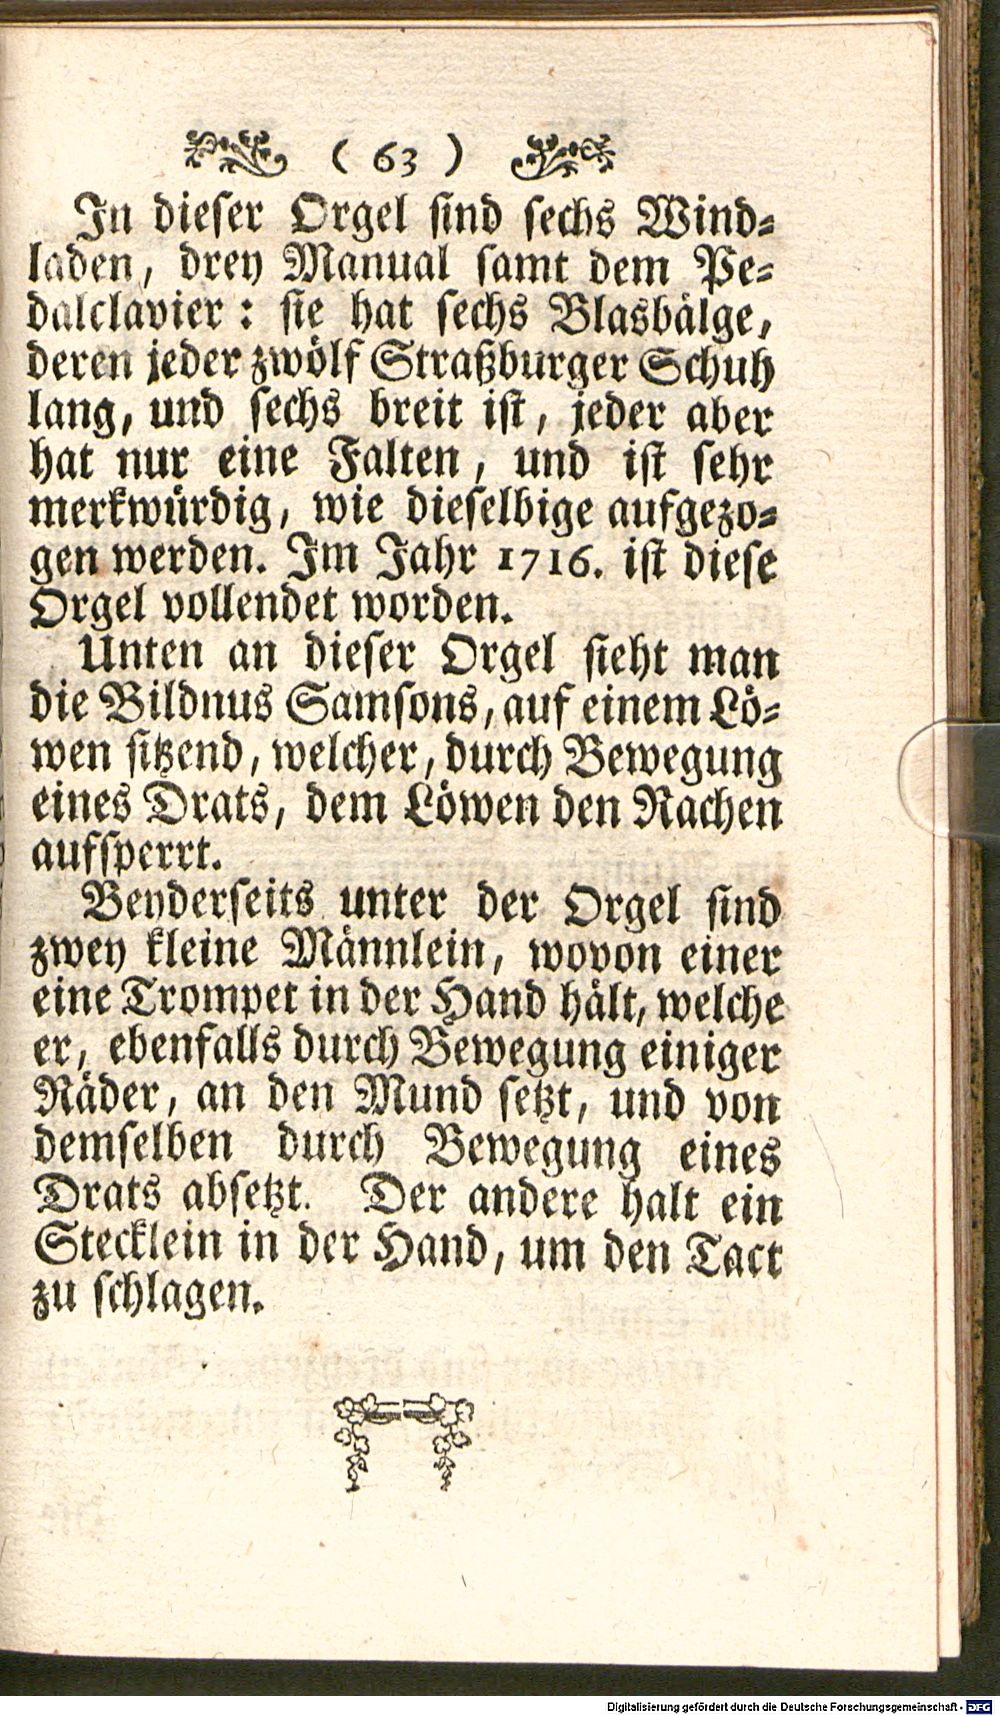 ( 63 )
In dieser Orgel sind sechs Wind-
laden, drey Manual samt dem Pe-
dalclavier: sie hat sechs Blasbälge,
deren jeder zwölf Straßburger Schuh
lang, und sechs breit ist, jeder aber
hat nur eine Falten, und ist sehr
merkwürdig, wie dieselbige aufgezo-
gen werden. Im Jahr 1716. ist diese
Orgel vollendet worden.
Unten an dieser Orgel sieht man
die Bildnus Samsons, auf einem Lö-
wen sitzend, welcher, durch Bewegung
eines Drats, dem Löwen den Rachen
aufsperrt.
Beyderseits unter der Orgel sind
zwey kleine Männlein, wovon einer
eine Trompet in der Hand hält, welche
er, ebenfalls durch Bewegung einiger
Räder, an den Mund setzt, und von
demselben durch Bewegung eines
Drats absetzt. Der andere halt ein
Stecklein in der Hand, um den Tact
zu schlagen.
Digitalisierung gefördert durch die Deutsche Forschungsgemeinschaft - DFG